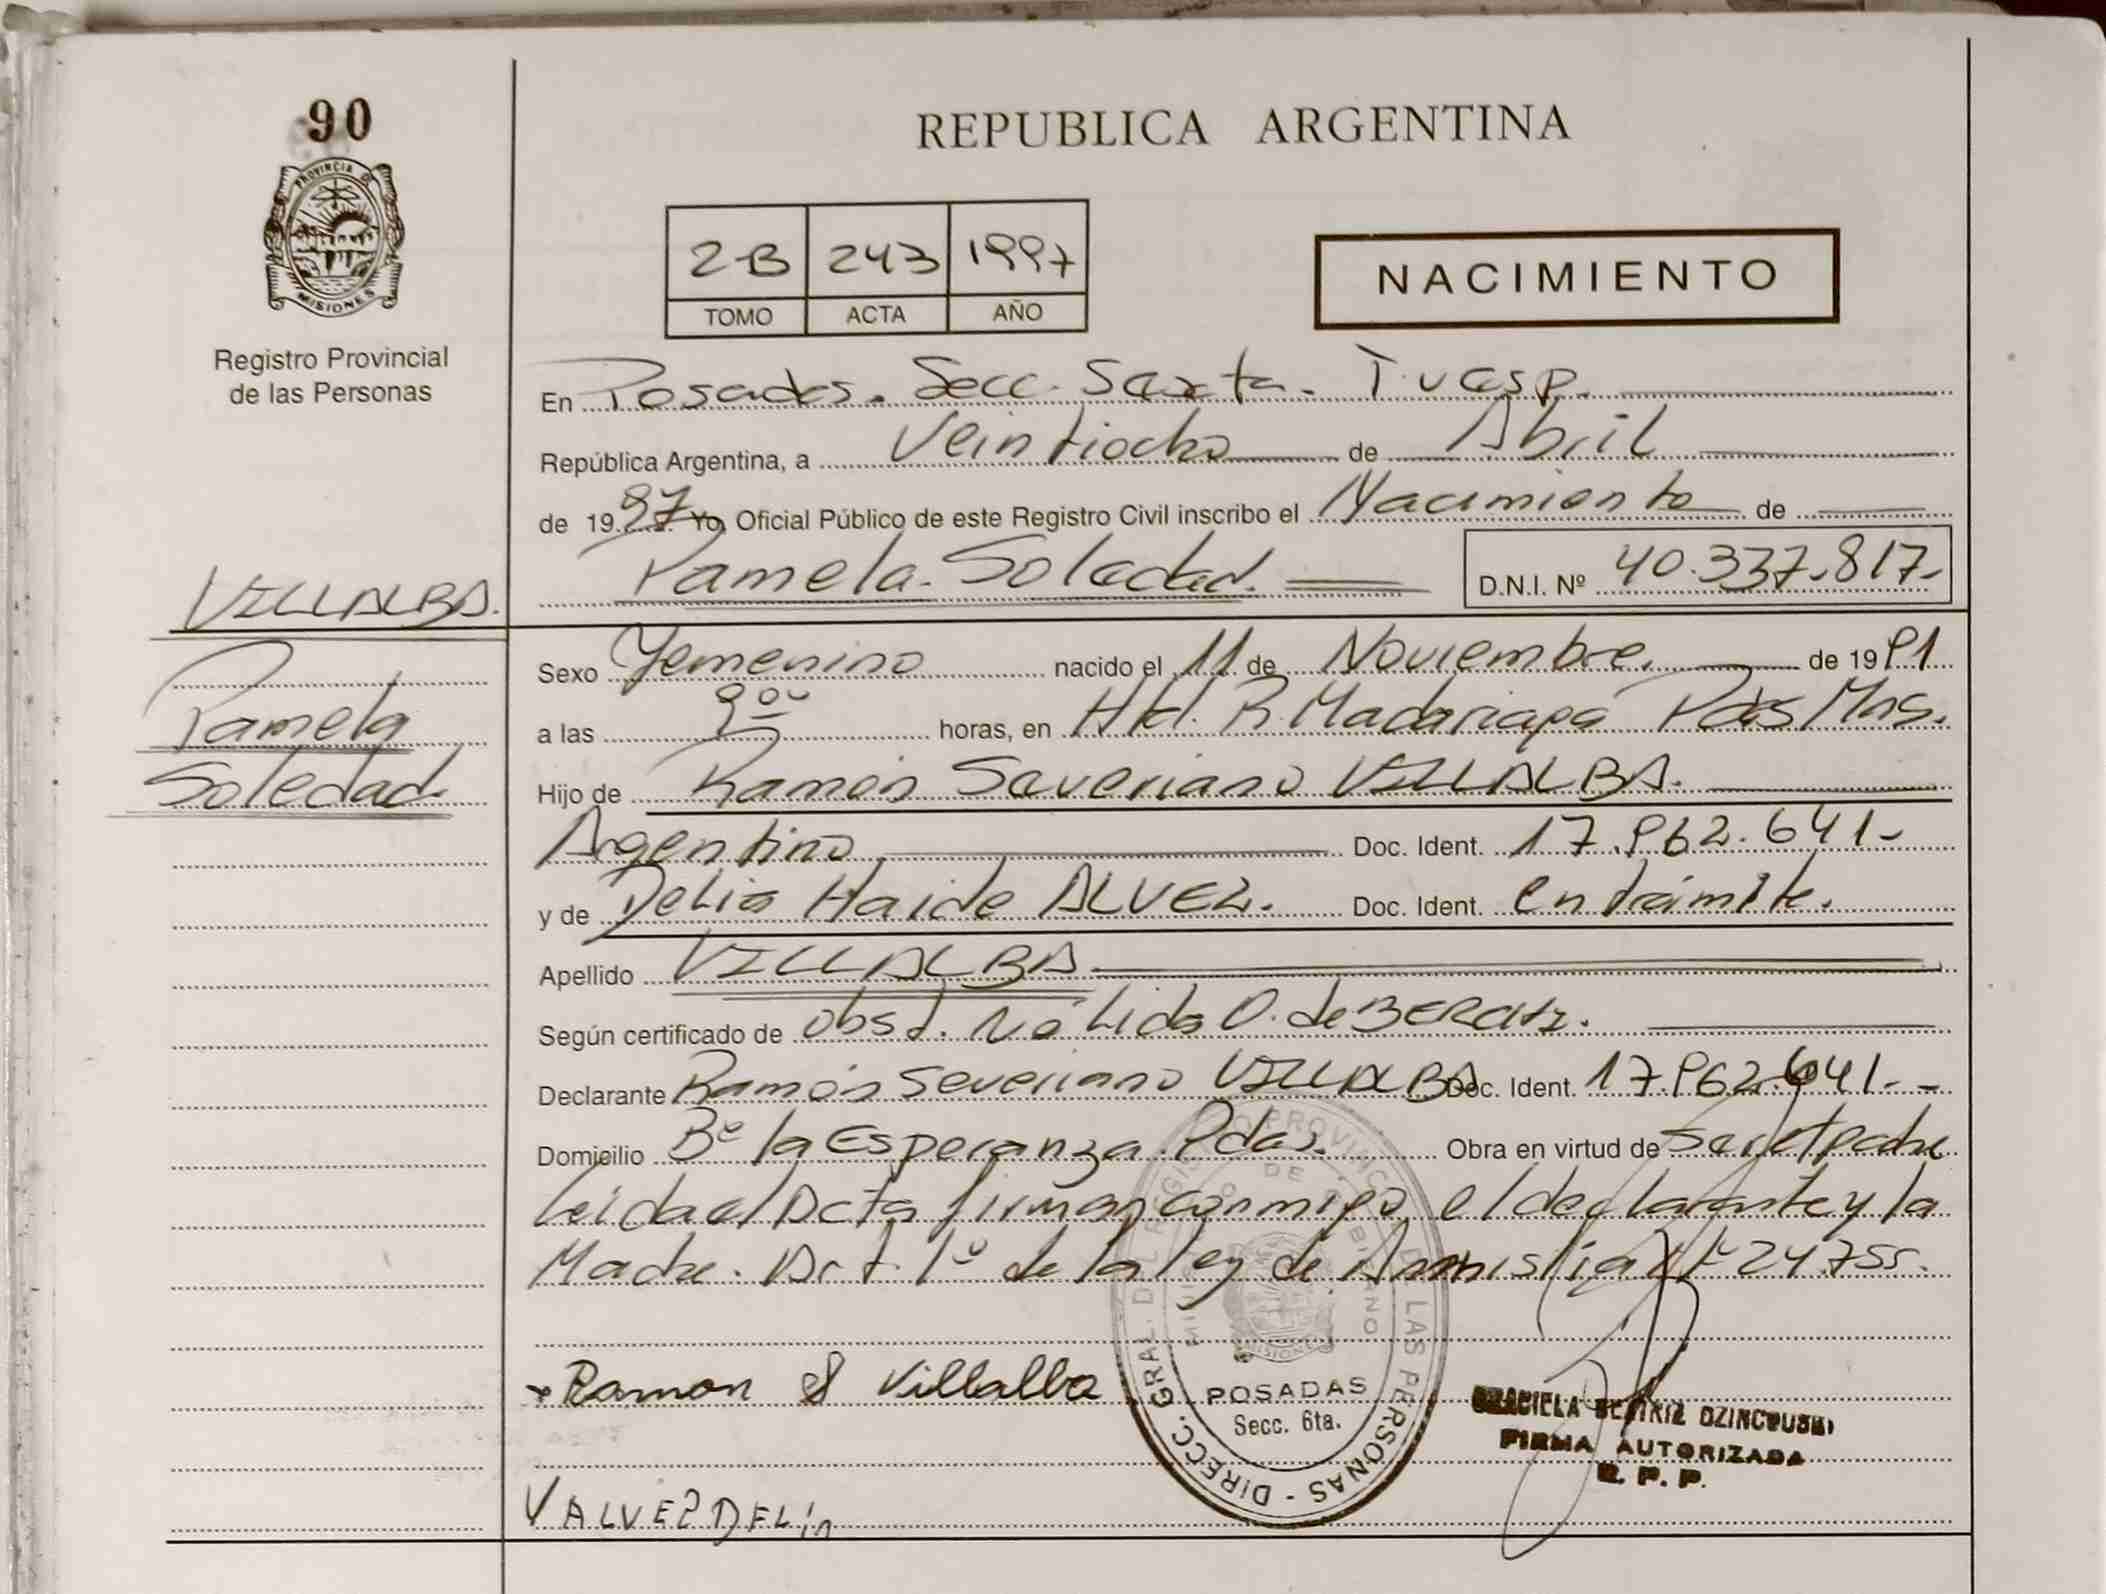 90
PROVINCIA DE
MISIONES
Registro Provincial
de las Personas
REPUBLICA ARGENTINA
2-B 243 1997
TOMO ACTA AÑO
NACIMIENTO
En Posadas. Secc. Sexta.
República Argentina, a Veintiocho de Abril
de 1997 Yo, Oficial Público de este Registro Civil inscribo el Nacimiento de
Pamela Soledad. D.N.I. Nº 40.337.817.-
VILLALBA.
Pamela
Soledad.
Sexo Femenino nacido el 11 de Noviembre. de 1991
a las 9 horas, en R. Madariaga Pdas Mns.
Hijo de Ramón Severiano VILLALBA.
Argentino Doc. Ident. 17.962.641.-
y de Delia Haide ALVEZ. Doc. Ident. en trámite.
Apellido VILLALBA
Según certificado de obst. Nélida O. de
Declarante Ramón Severiano VILLALBA Doc. Ident. 17.962.641.-
Domicilio Bº la Esperanza. Pdas. Obra en virtud de ser el padre
leida el Acta firman conmigo el declarante y la
Madre. Art. 1º de la ley de Amnistia Nº 24.755.
Ramon S Villalba
DIRECC. GRAL. DEL REGISTRO PROVINCIAL DE LAS PERSONAS
MISIONES
POSADAS
Secc. 6ta.
GRACIELA BEATRIZ
FIRMA AUTORIZADA
R. P. P.
ALVEZ DELIA